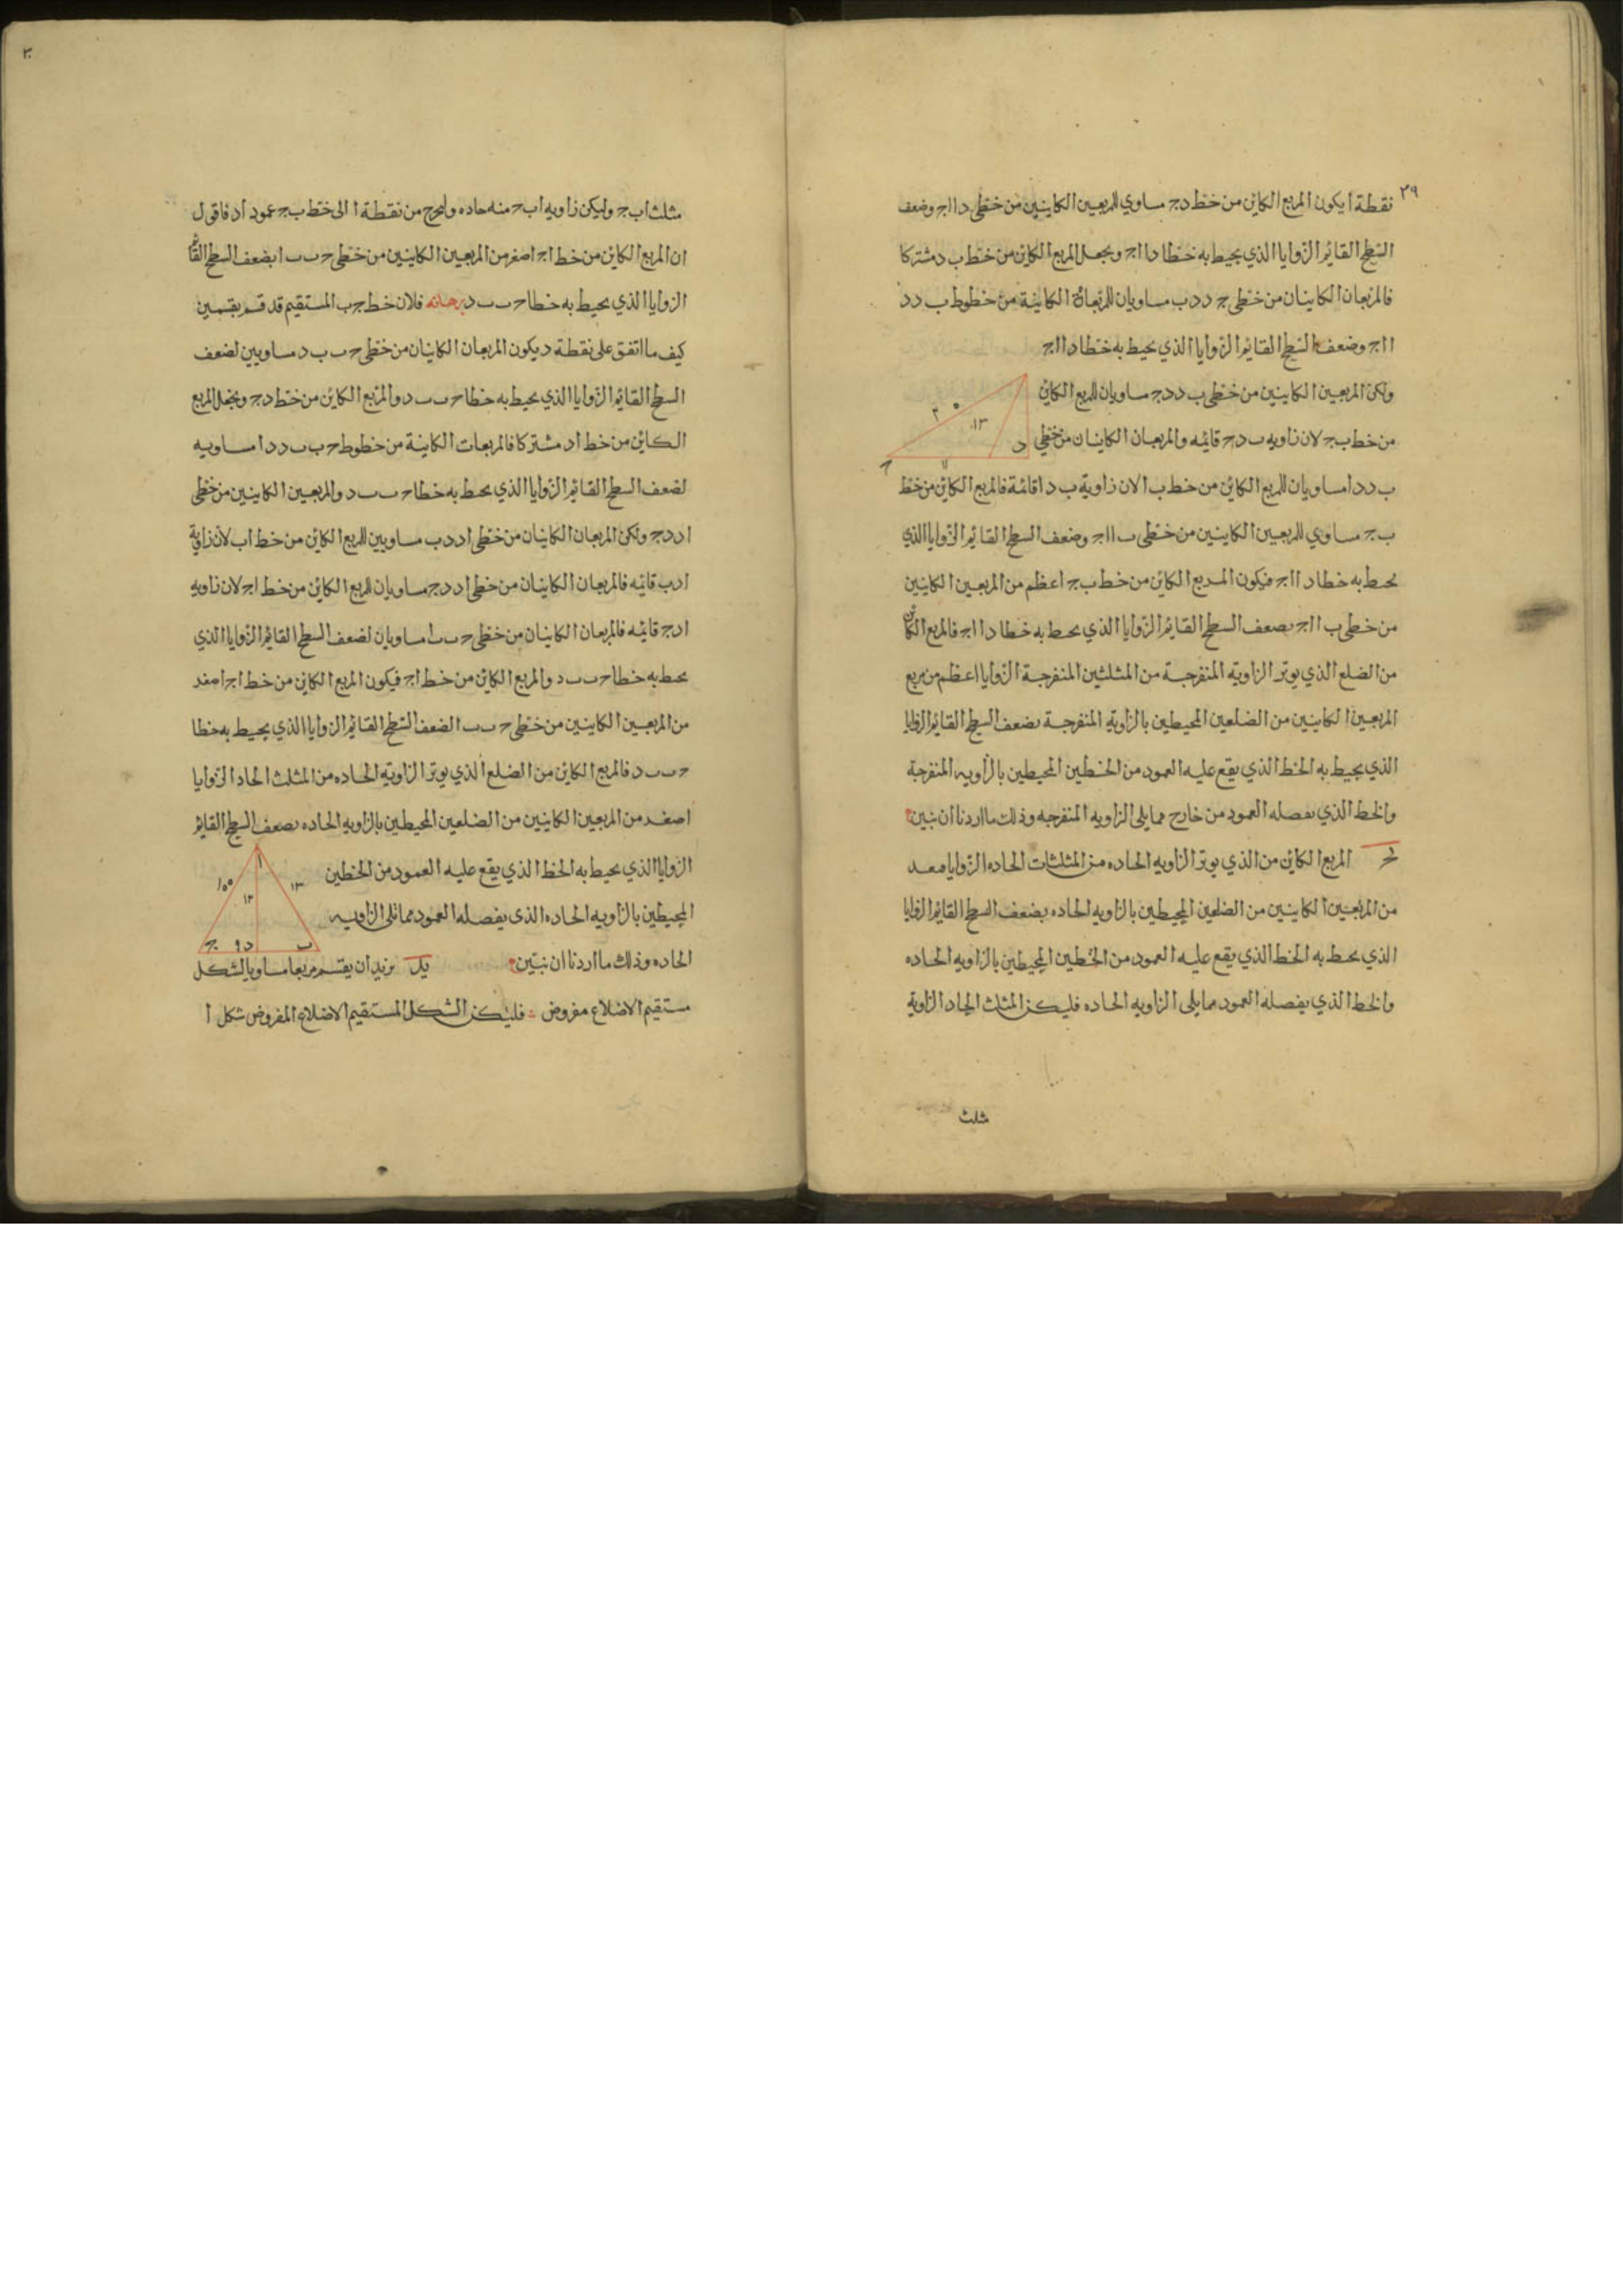 ٢٩
نقطة ا يكون المربع الكاين من خط د ج مساوي للمربعين الكاينين من خطي د ا ا ج وضعف
السطح القايم الزوايا الذي يحيط به خطا د ا ا ج ونجعل المربع الكاين من خط ب د مشتركا
فالمربعان الكاينان من خطي ج د د ب مساويان للمربعات الكاينة من خطوط ب د د
ا ا ج وضعف السطح القايم الزوايا الذي يحيط به خطا د ا ا ج
ولكن المربعين الكاينين من خطي ب د د ج مساويان للمربع الكاين
من خط ب ج لان زاويه ب د ج قائمه والمربعان الكاينان من خطي
ب د د ا مساويان للمربع الكاين من خط ب ا لان زاوية ب د ا قائمة فالمربع الكاين من خط
ب ج مساوي للمربعين الكاينين من خطي ب ا ا ج وضعف السطح القايم الزوايا الذي
يحيط به خطا د ا ا ج فيكون المربع الكاين من خط ب ج اعظم من المربعين الكاينين
من خطي ب ا ا ج بضعف السطح القايم الزوايا الذي يحيط به خطا د ا ا ج فالمربع الكاين
من الضلع الذي يوتر الزاويه المنفرجة من المثلثين المنفرجة الزوايا اعظم من مربع
المربعين الكاينين من الضلعين المحيطين بالزاوية المنفرجة بضعف السطح القايم الزوايا
الذي يحيط به الخط الذي يقع عليه العمود من الخطين المحيطين بالزاويه المنفرجة
والخط الذي يفصله العمود من خارج مما يلي الزاويه المنفرجه وذلك ما اردنا ان نبين
يج المربع الكاين من الذي يوتر الزاويه الحاده من المثلثات الحاده الزوايا اصغر
من المربعين الكاينين من الضلعين المحيطين بالزاويه الحاده بضعف السطح القايم الزوايا
الذي يحيط به الخط الذي يقع عليه العمود من الخطين المحيطين بالزاويه الحاده
والخط الذي يفصله العمود مما يلي الزاويه الحاده فليكن المثلث الحاد الزاوية
مثلث
٣٠
مثلث ا ب ج وليكن زاويه ا ب ج منه حاده وليخرج من نقطة ا الى خط ب ج عمود ا د فاقول
ان المربع الكاين من خط ا ج اصغر من المربعين الكاينين من خطي ج ب ب ا بضعف السطح القائم
الزوايا الذي يحيط به خطا ج ب ب د برهانه فلان خط ج ب المستقيم قد قسم بقسمين
كيف ما اتفق على نقطة د يكون المربعان الكاينان من خطي ج ب ب د مساويين لضعف
السطح القائم الزوايا الذي يحيط به خطا ج ب ب د والمربع الكاين من خط د ج ونجعل المربع
الكاين من خط ا د مشتركا فالمربعات الكاينة من خطوط ج ب ب د د ا مساويه
لضعف السطح القايم الزوايا الذي يحيط به خطا ج ب ب د والمربعين الكاينين من خطي
ا د د ج ولكن المربعان الكاينان من خطي ا د د ب مساويين للمربع الكاين من خط ا ب لان زاوية
ا د ب قائمه فالمربعان الكاينان من خطي ا د د ج مساويان للمربع الكاين من خط ا ج لان زاويه
ا د ج قائمه فالمربعان الكاينان من خطي ج ب ب ا مساويان لضعف السطح القائم الزوايا الذي
يحيط به خطا ج ب ب د والمربع الكاين من خط ا ج فيكون المربع الكاين من خط ا ج اصغر
من المربعين الكاينين من خطي ج ب ب ا لضعف السطح القايم الزوايا الذي يحيط به خطا
ج ب ب د فالمربع الكاين من الضلع الذي يوتر الزاويه الحاده من المثلث الحاد الزوايا
اصغر من المربعين الكاينين من الضلعين المحيطين بالزاويه الحاده بضعف السطح القايم
الزوايا الذي يحيط به الخط الذي يقع عليه العمود من الخطين
المحيطين بالزاويه الحاده الذي يفصله العمود مما تلي الزاويه
الحاده وذلك ما اردنا ان نبين يد نريد ان يقسم مربعا مساويا لشكل
مستقيم الاضلاع مفروض فليكن الشكل المستقيم الاضلاع المفروض شكل ا